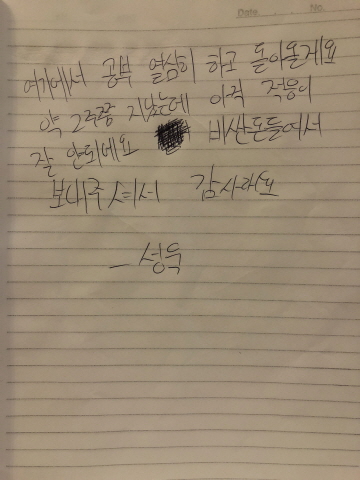 Date. No.
여기에서 공부 열심히 하고 돌아올게요
약 2주쯤 지났는데 아직 적응이
잘 안되에요 비싼돈들여서
보내주셔서 감사해요
- 성욱